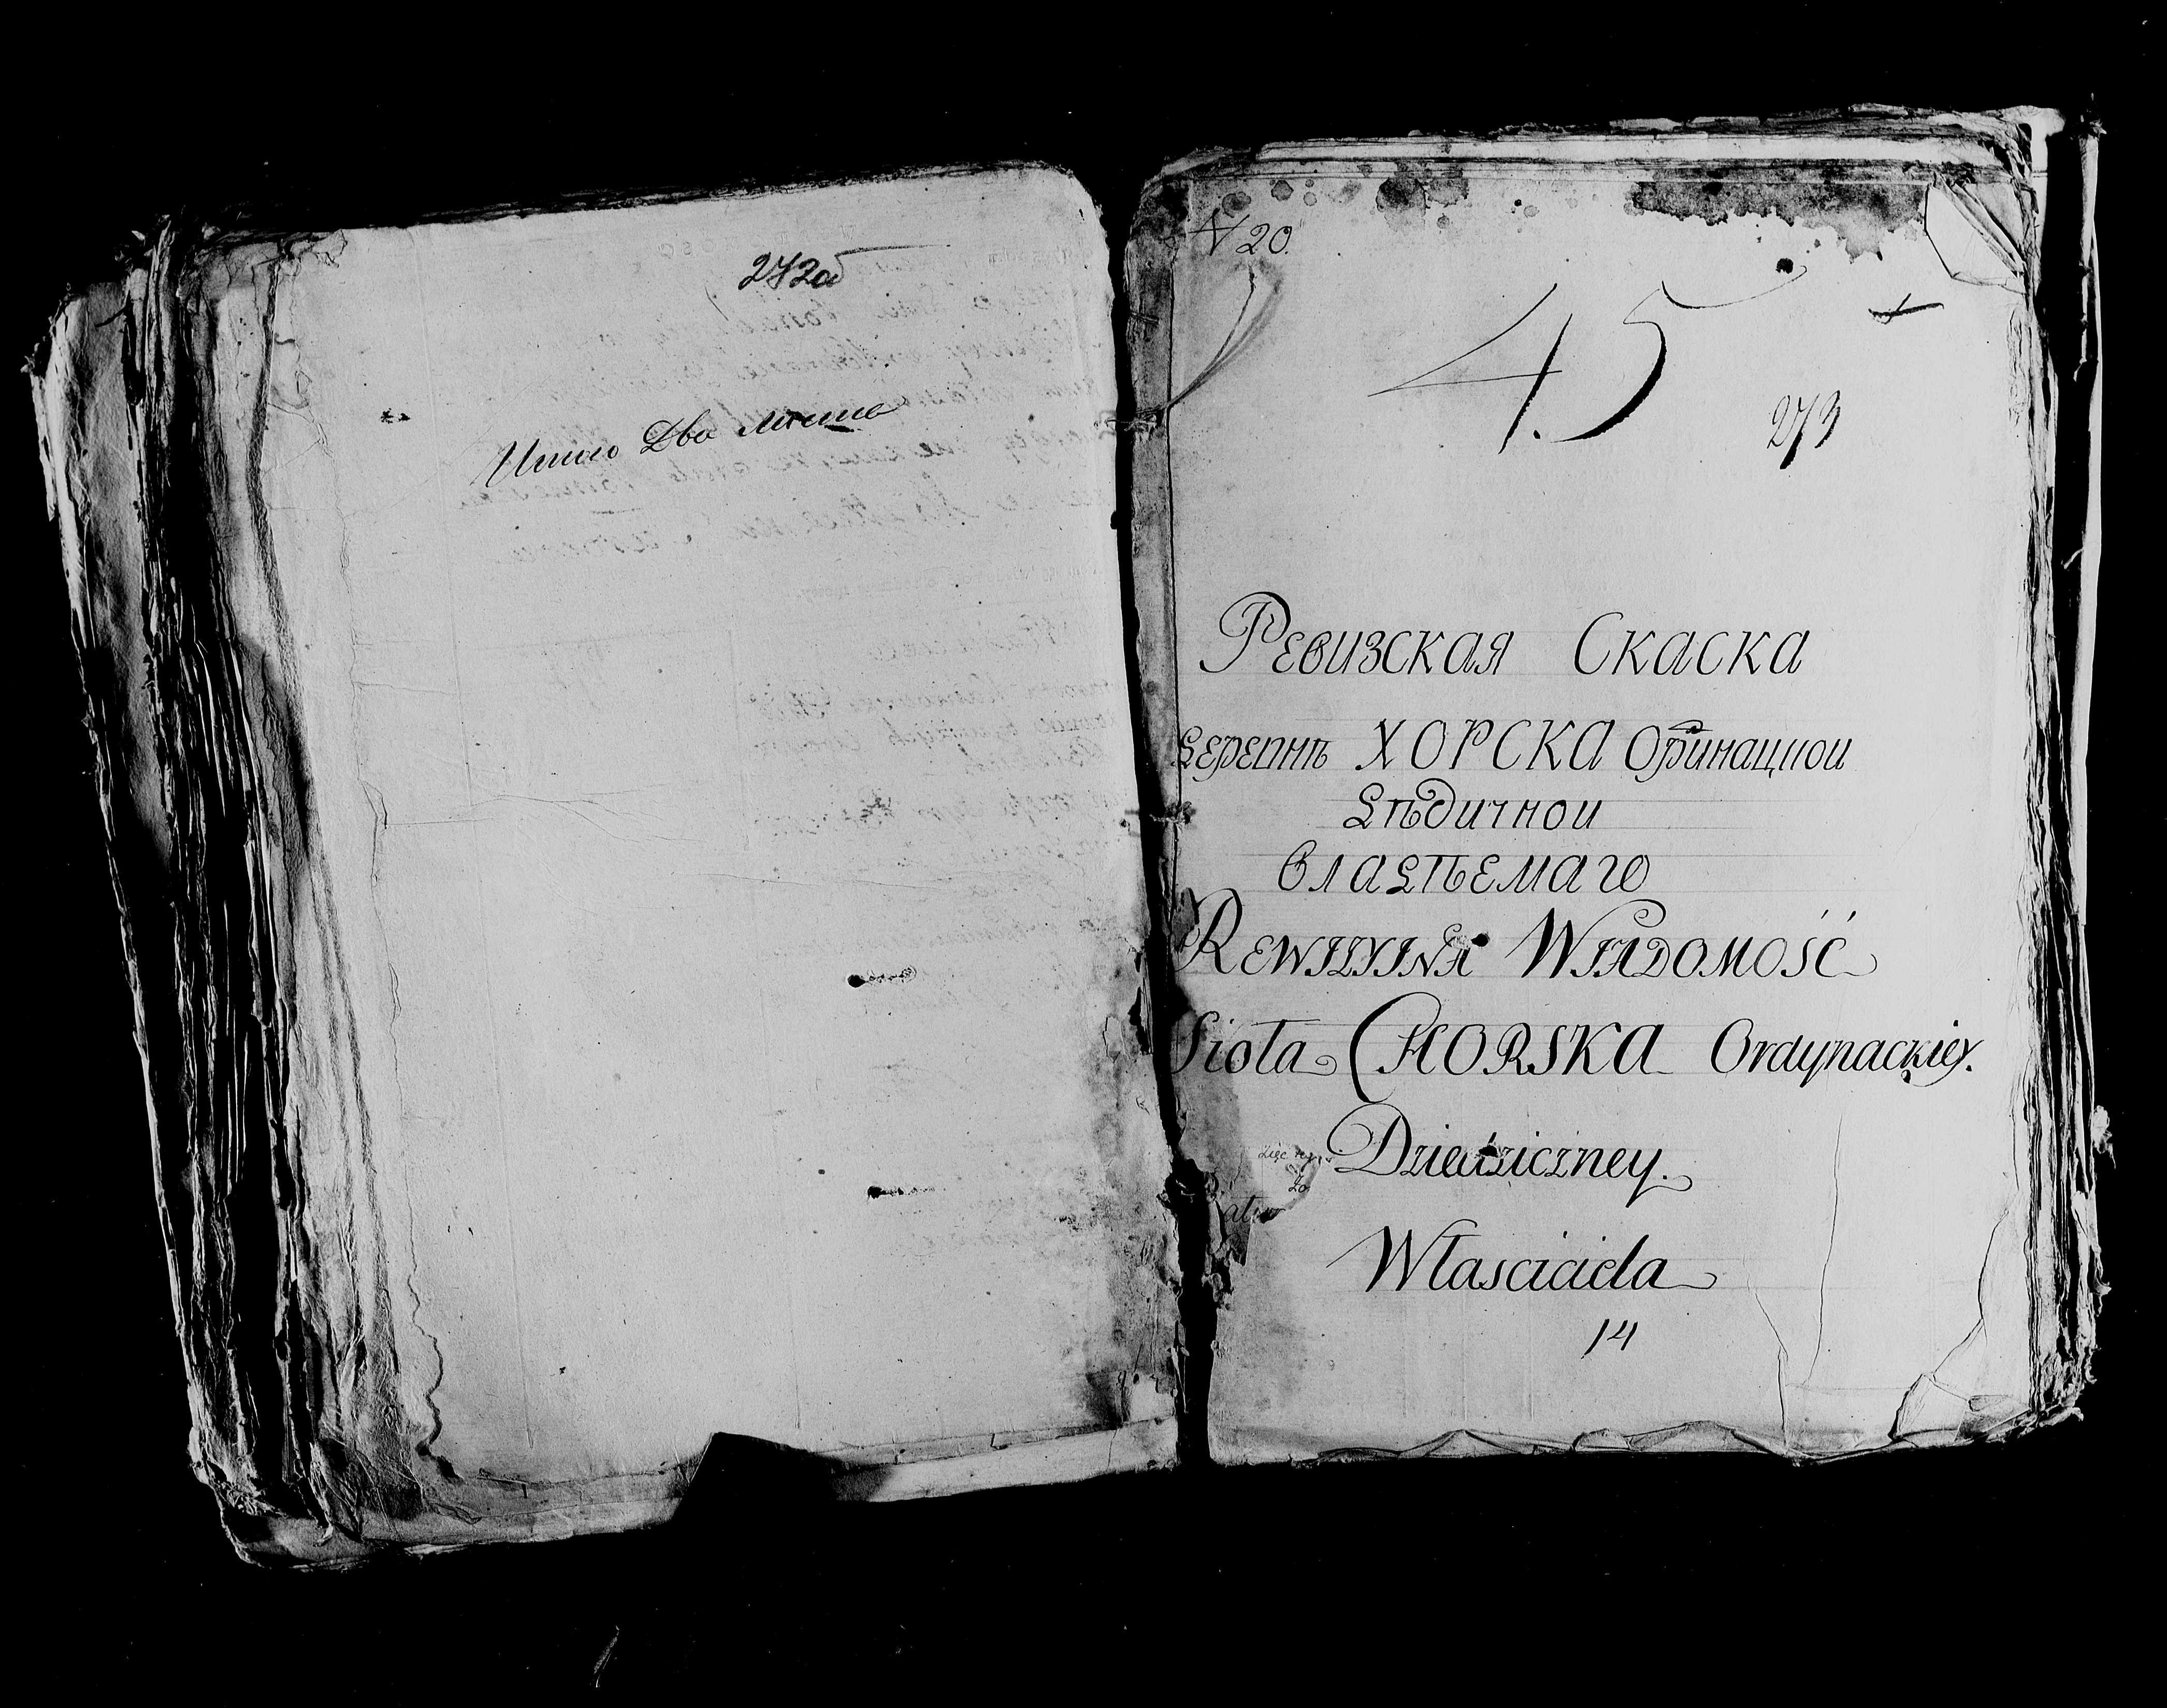 272об
Итого два листа
N 20.
45
273
Ревизская Скаска
Деревнѣ ХОРСКА Ординацкой
Дѣдичной
владѣемаго
REWIZYINA WIADOMOŚĆ
Siola CHORSKA Ordynackiey.
Dziedziczney.
Własciciela
14